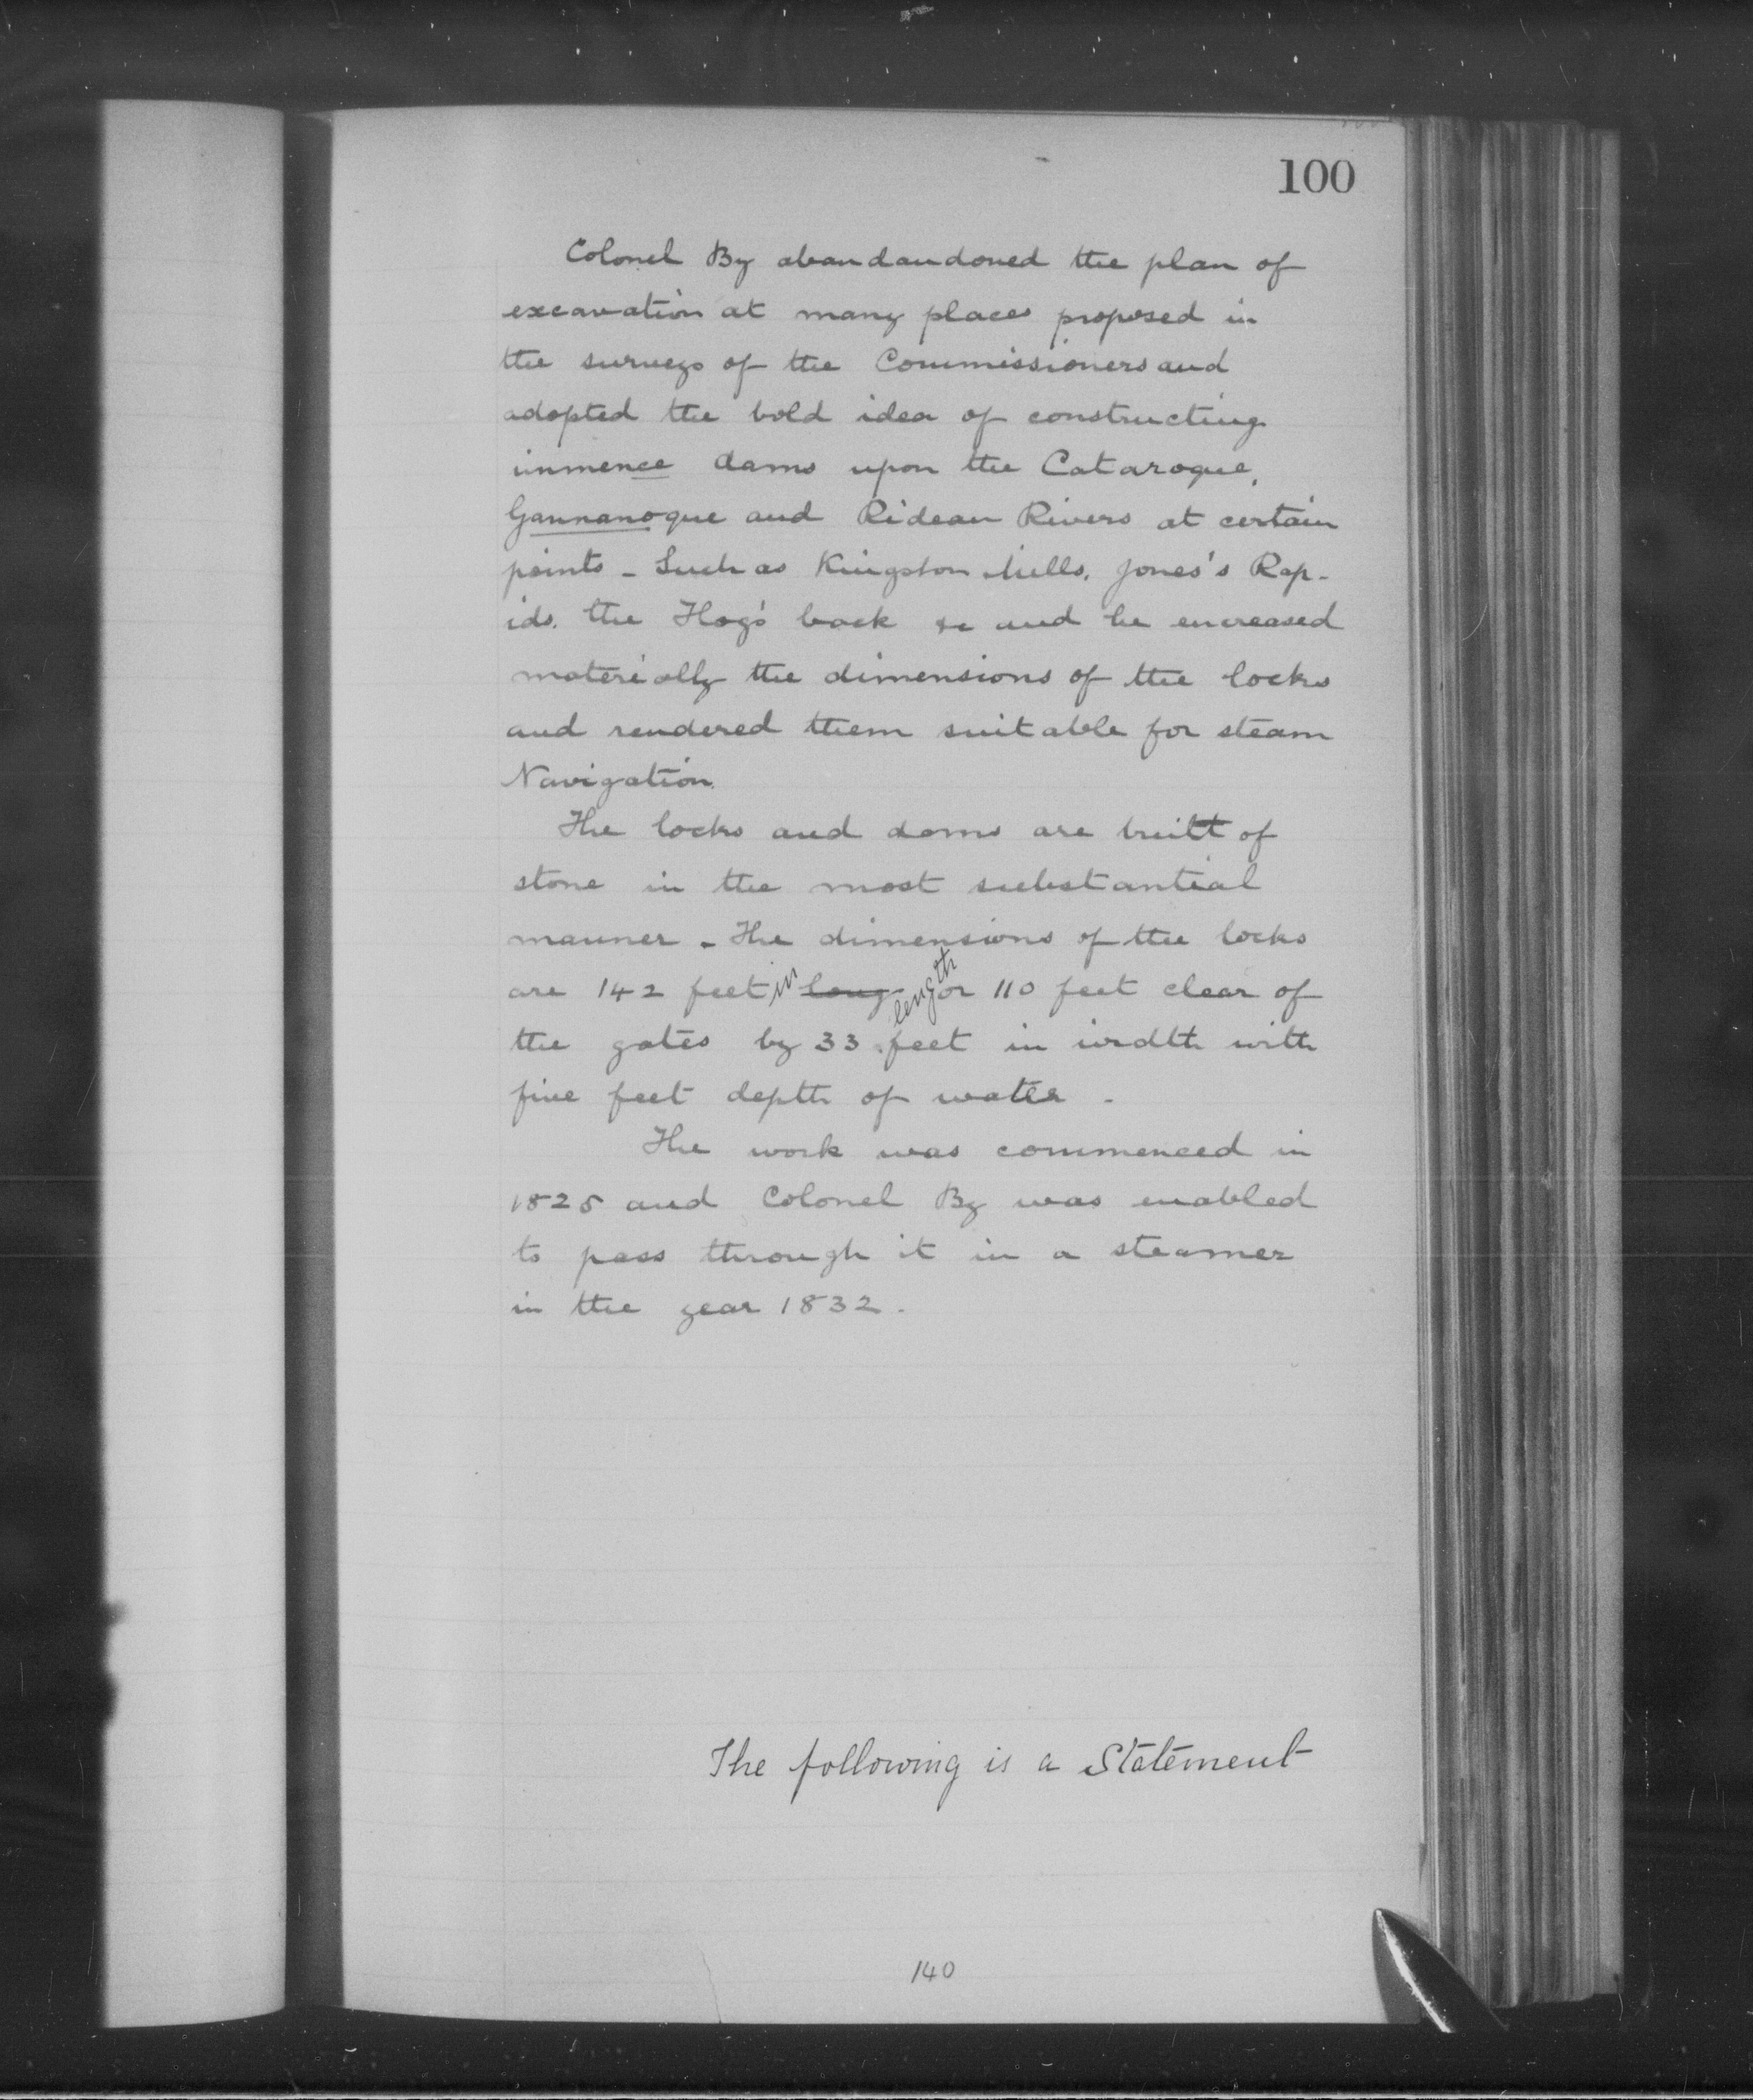 100
Colonel By abandandoned the plan of
excavation at many places proposed in
the surveys of the Commissioners and
adopted the bold idea of constructing
immence dams upon the Cataroque,
Gannanoque and Rideau Rivers at certain
points - Such as Kingston Mills, Jones's Rap-
ids, the Hog's back &c and he encreased
materially the dimensions of the locks
and rendered them suitable for steam
Navigation.
The locks and dams are built of
stone in the most substantial
manner - The dimensions of the locks
are 142 feet in long length or 110 feet clear of
the gates by 33 feet in width with
five feet depth of water -
The work was commenced in
1825 and Colonel By was enabled
to pass through it in a steamer
in the year 1832.
The following is a Statement
140